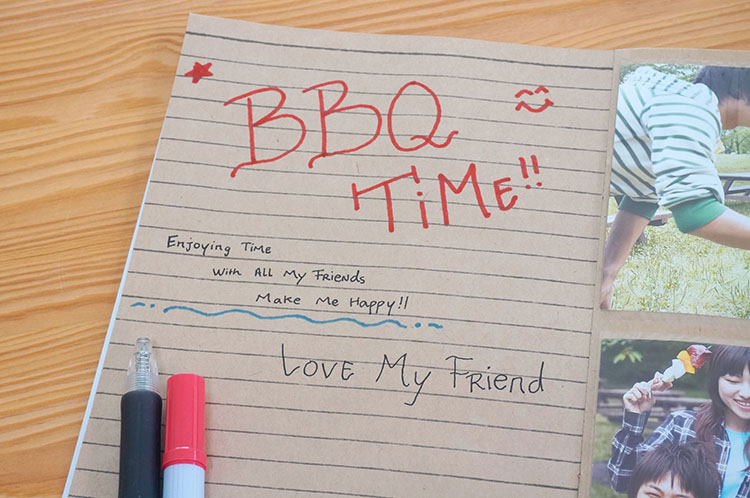 BBQ
TiME!!
Enjoying Time
With All My Friends
Make Me Happy!!
Love My Friend